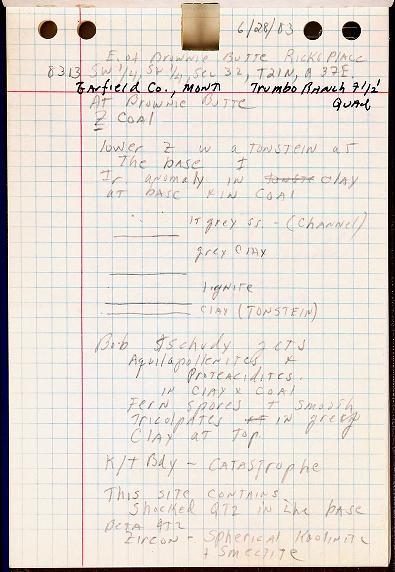 6/28/83
E of Brownie Butte Ricks Place
8313 SW 1/4, SW 1/4, Sec 32, T21N, R 37E
Garfield Co., Mont Trumbo Ranch 7 1/2'
At Brownie Butte Quad
Z Coal
lower Z w a Tonstein at
The base
Ir anomaly in Clay
at base & in Coal
lt grey ss - (Channel)
grey Clay
lignite
Clay (Tonstein)
Bob Tschudy gets
Aquilapollenites &
Proteacidites
in Clay & Coal
Fern spores + smooth
Tricolpates in grey
Clay at Top
K/T Bdy - Catastrophe
This site contains
Shocked QTZ in the base
Beta QTZ
Zircon - Spherical Kaolinite
+ Smectite